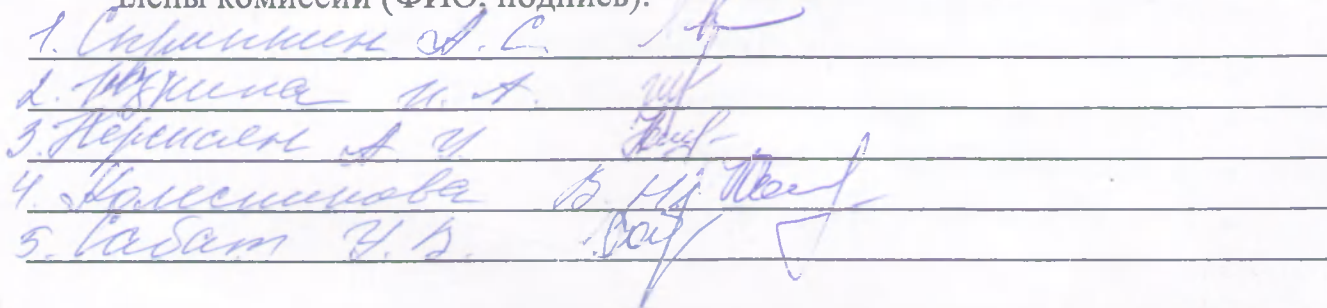 Члены комиссии (ФИО, подпись):
1. Скрыпкин А.С.
2. И. А.
3. Нерсисян А У
4. Колесникова В. Н.
5. Сабат У.В.